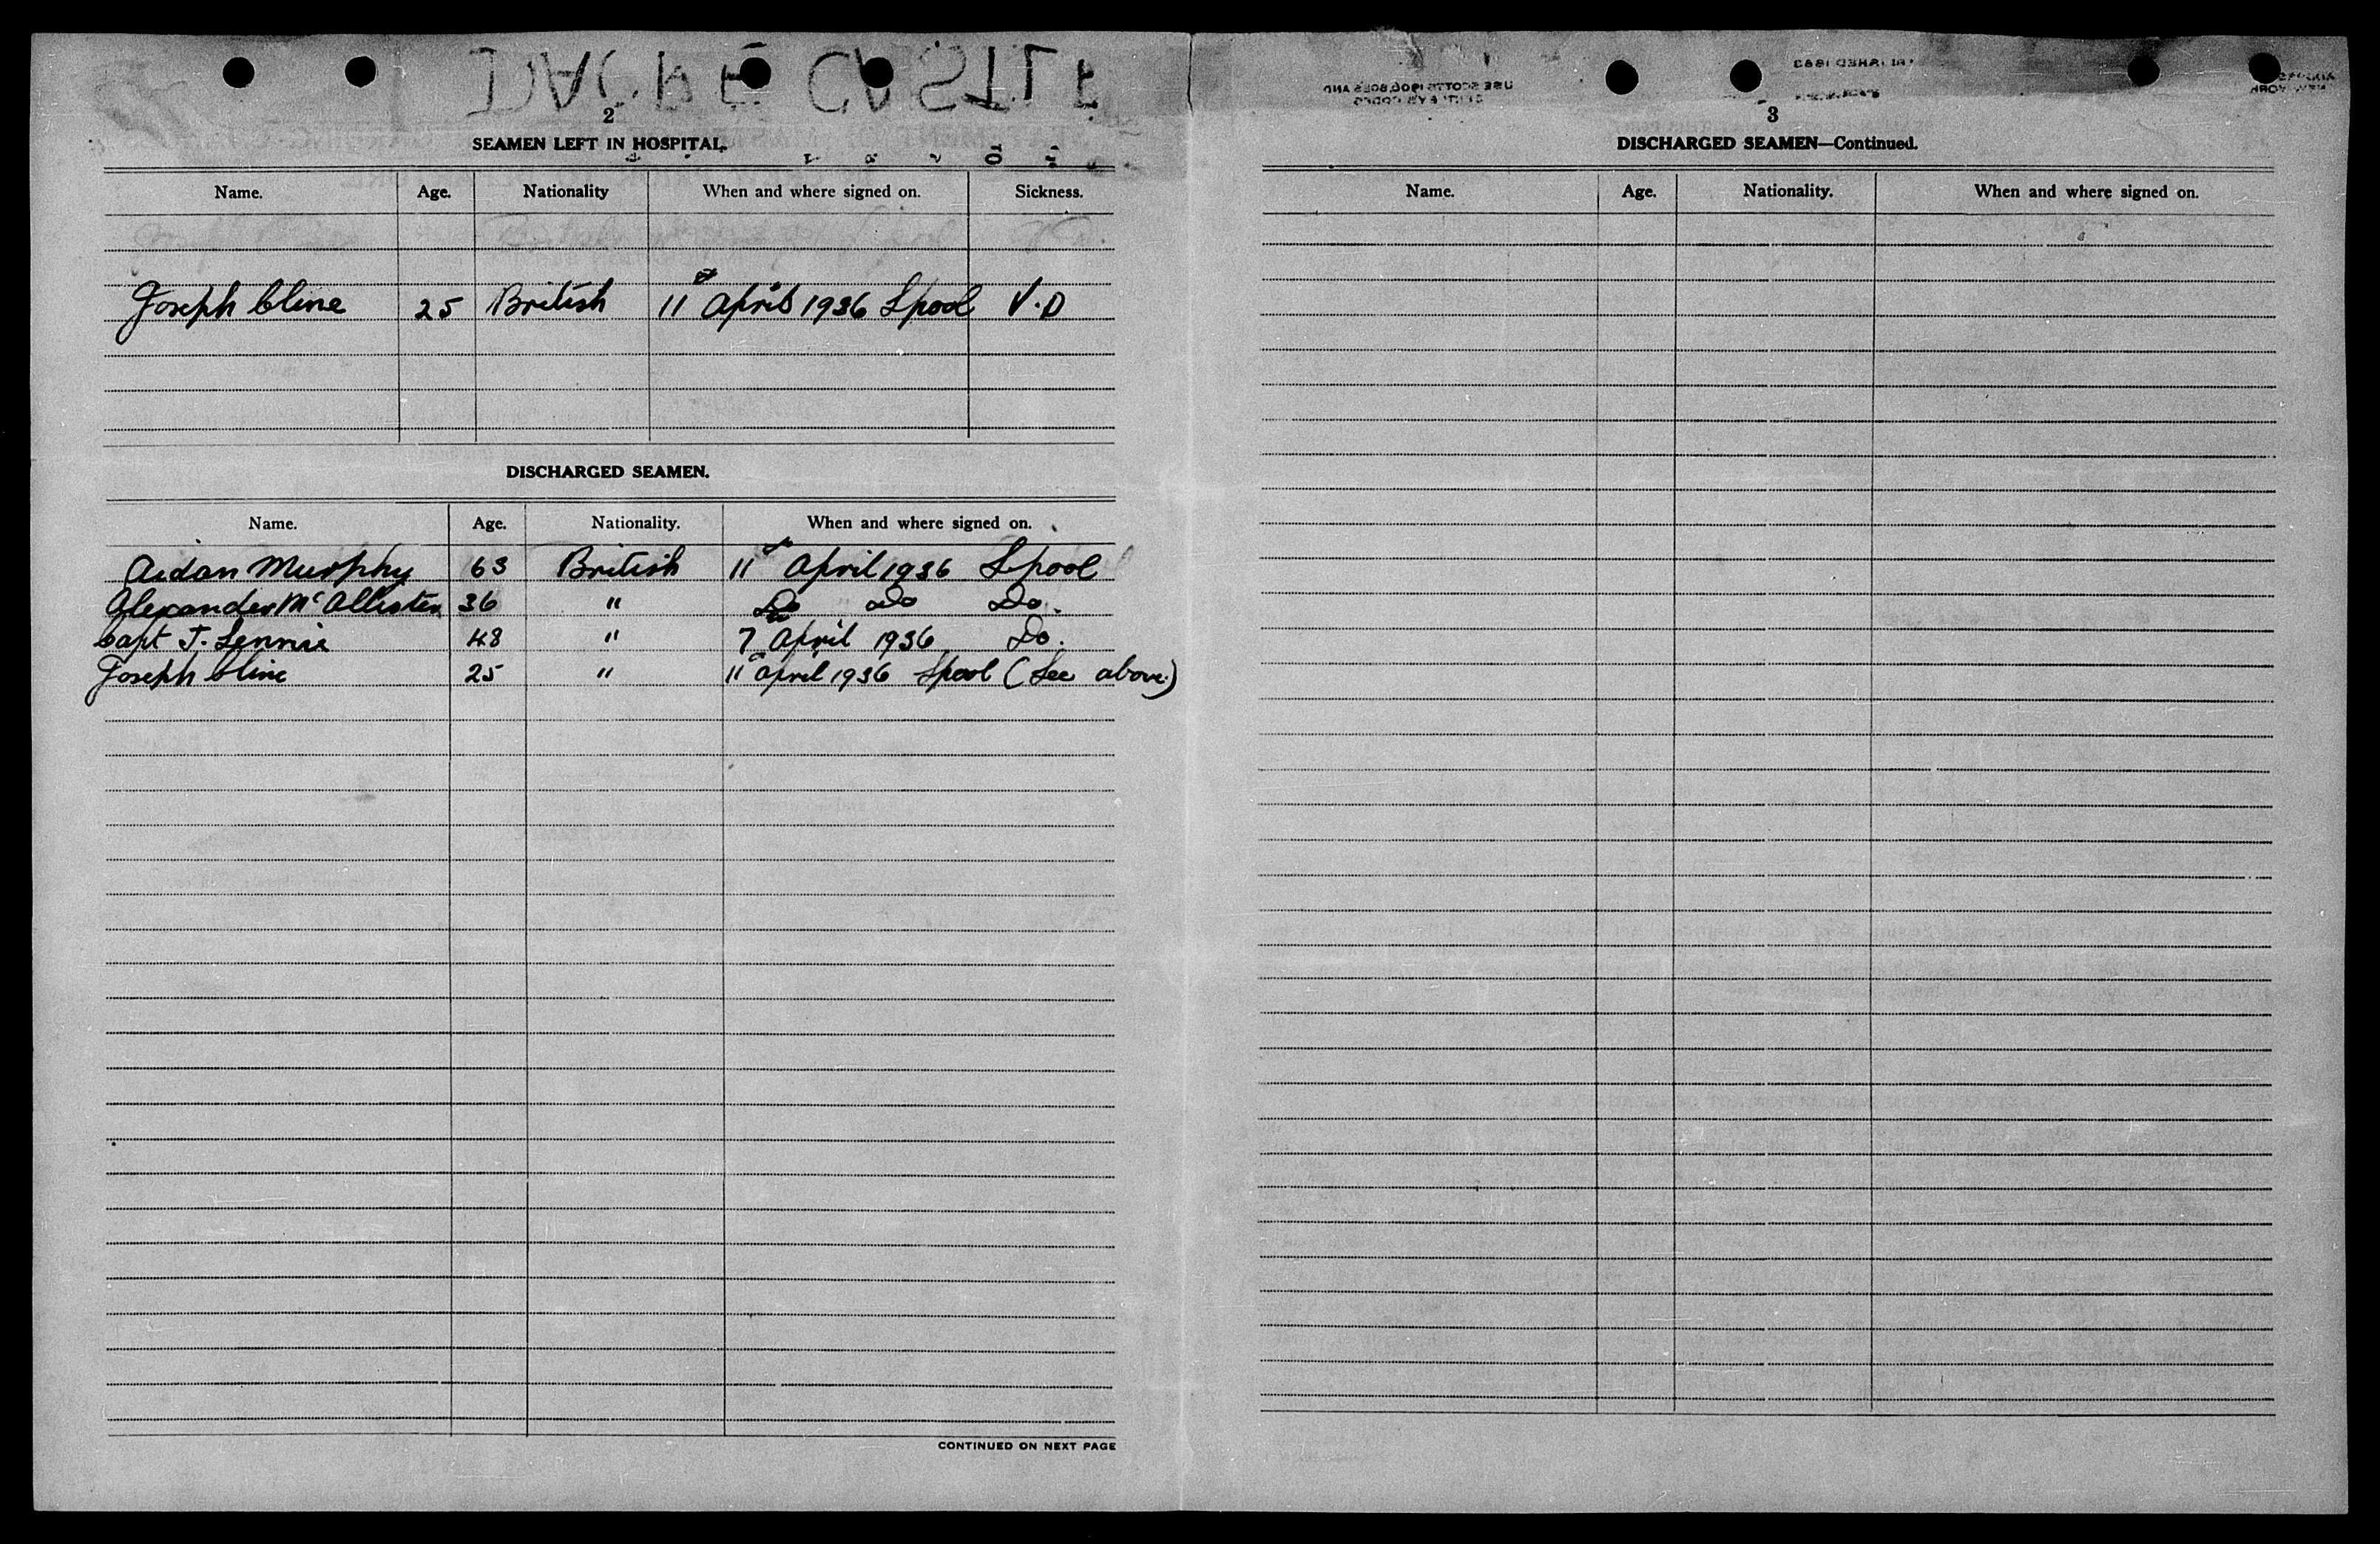 DACRE CASTLE
2
SEAMEN LEFT IN HOSPITAL.
Name. Age. Nationality When and where signed on. Sickness.
Joseph Cline 25 British 11th April 1936 Lpool V.D
DISCHARGED SEAMEN.
Name. Age. Nationality. When and where signed on.
Aidan Murphy 63 British 11th April 1936 Lpool
Alexander McAllister 36 " Do Do Do.
Capt J. Lennie 48 " 7th April 1936 Do.
Joseph Cline 25 " 11th April 1936 Lpool (See above)
CONTINUED ON NEXT PAGE
3
DISCHARGED SEAMEN—Continued.
Name. Age. Nationality. When and where signed on.